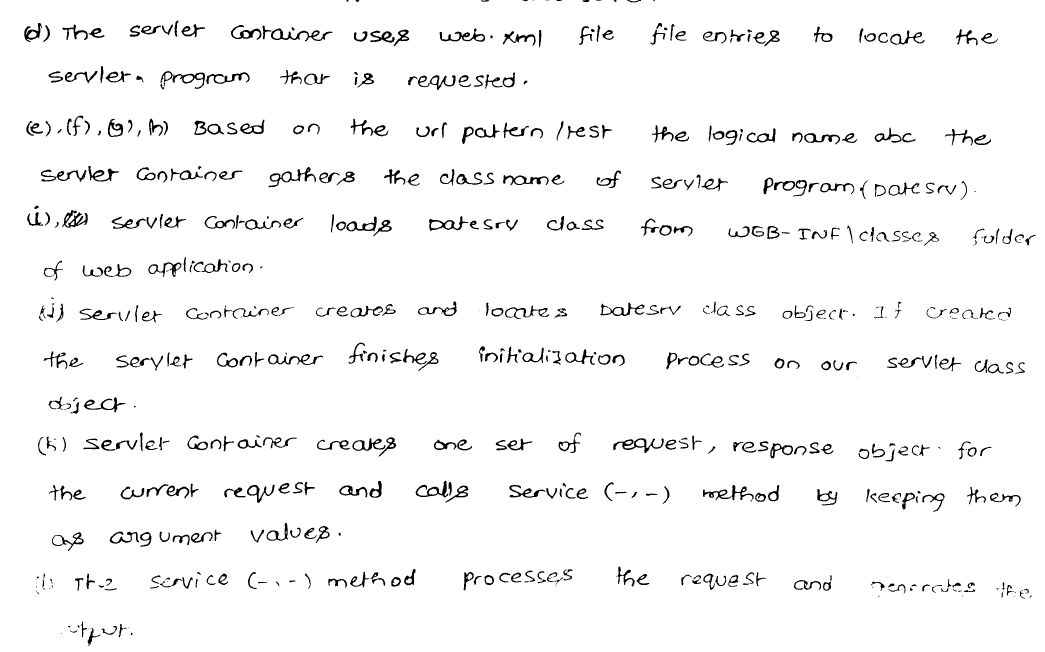 (d) The servlet Container uses web.xml file file entries to locate the
servlet program that is requested.
(e),(f),(g),(h) Based on the url pattern /test the logical name abc the
servlet Container gathers the class name of servlet program (Datesrv).
(i), servlet Container loads Datesrv class from WEB-INF\classes folder
of web application.
(j) servlet Container creates and locates Datesrv class object. If created
the servlet Container finishes initialization process on our servlet class
object.
(k) servlet Container creates one set of request, response object for
the current request and calls service (-,-) method by keeping them
as argument values.
(l) The service (-,-) method processes the request and generates the
output.